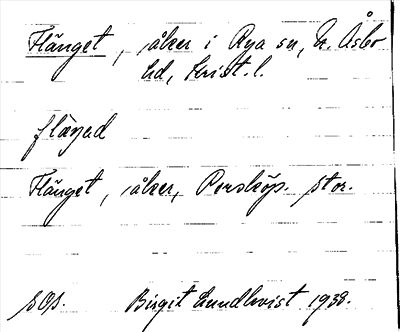 Flänget, åker i Rya sn, N. Åsbo
hd, Krist. l.
flæŋad
Flänget, åker, Perstorp. Stor.
sOs. Birgit Lundkvist 1938.